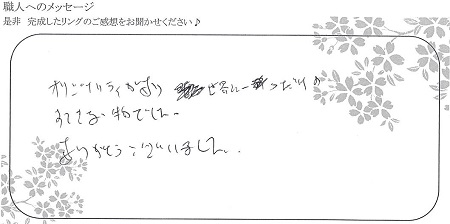 職人へのメッセージ
是非 完成したリングのご感想をお聞かせください♪
オリジナリティがあり 世界に一つだけの
すてきな物でした。
ありがとうございました。